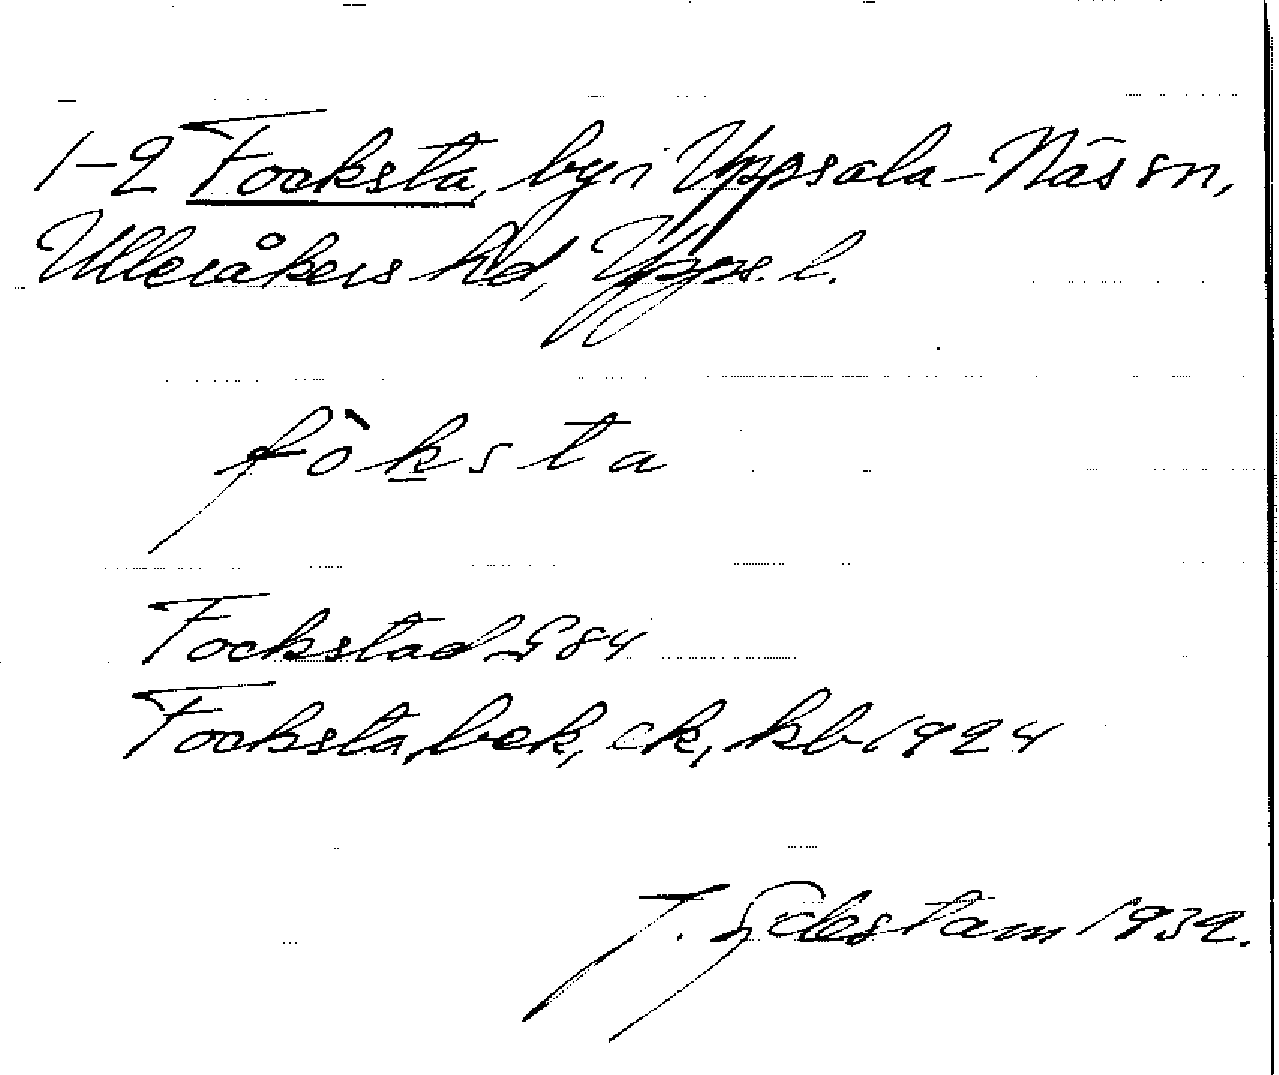 1-2 Focksta, by i Uppsala-Näs sn,
Ulleråkers hd, Upps. l.
fòksta
Fockstad G 84
Focksta, bek, ck, kb 1924
J. Götlestam 1932.